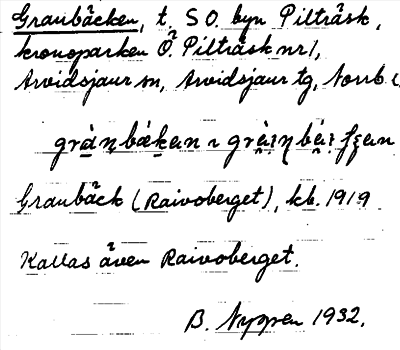 Granbäcken, t. S O. byn Pilträsk,
kronoparken Ö. Pilträsk nr 1,
Arvidsjaur sn, Arvidsjaur tg, Norrb
Granbäck (Raivoberget), kb. 1919
Kallas även Raivoberget.
B. Nyppen 1932.